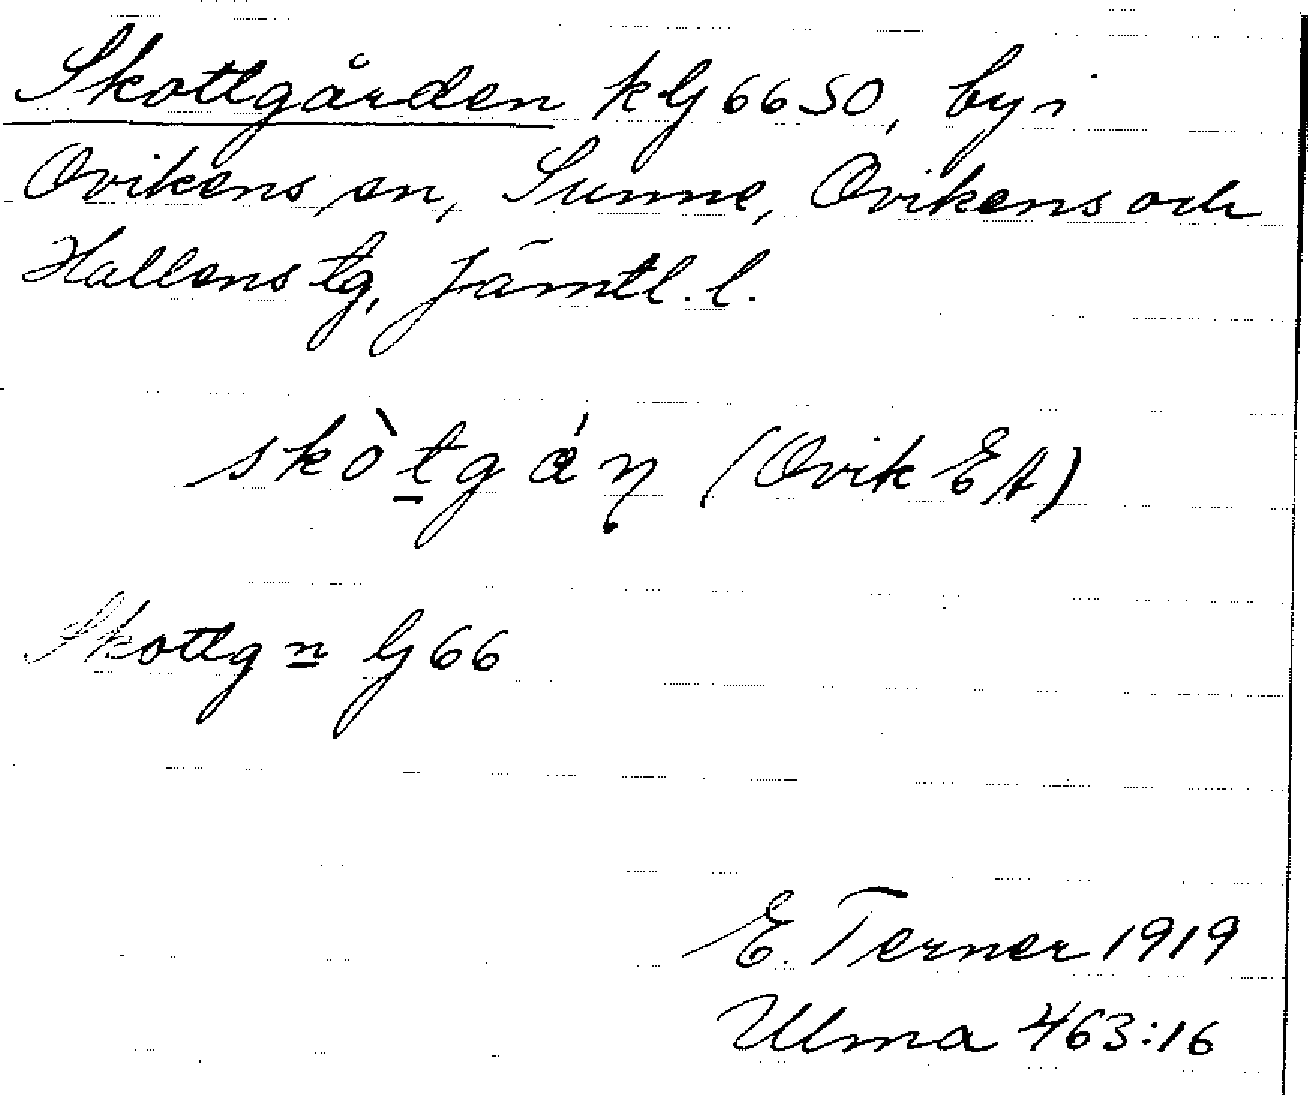 Skottgården kG66SO, by i
Ovikens sn, Sunne, Ovikens och
Hallens tg, Jämtl. l.
skòt̲gáņ (Ovik EA)
Skottgn̲ G66
E. Terner 1919
Ulma 463:16